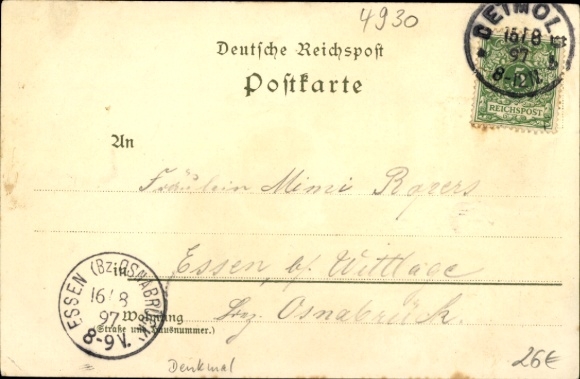 4930
DETMOLD
16/8
97
8-12V.
REICHSPOST
Deutsche Reichspost
Postkarte
An
Fräulein Mimi Rogers
in Essen, bz. Wittlage
bz. Osnabrück.
Wohnung
(Straße und Hausnummer.)
ESSEN (Bz. OSNABRÜCK)
16/8
97
8-9V.
Denkmal
26€